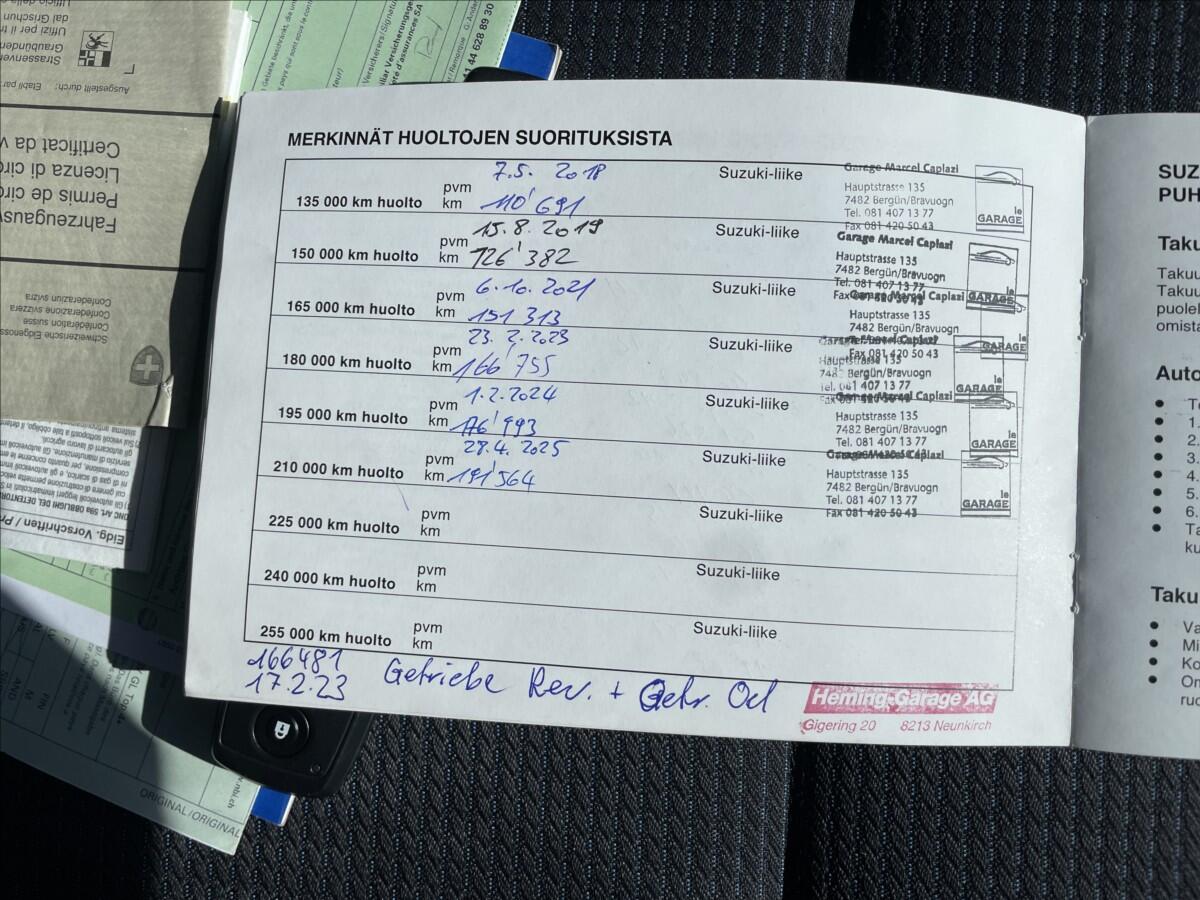 MERKINNÄT HUOLTOJEN SUORITUKSISTA
135 000 km huolto pvm 7.5. 2018 Suzuki-liike
km 110'691
Garage Marcel Caplazi
Hauptstrasse 135
7482 Bergün/Bravuogn
Tel. 081 407 13 77
Fax 081 420 50 43
le GARAGE
150 000 km huolto pvm 15.8.2019 Suzuki-liike
km 126'382
Garage Marcel Caplazi
Hauptstrasse 135
7482 Bergün/Bravuogn
Tel. 081 407 13 77
Fax 081 420 50 43
GARAGE
165 000 km huolto pvm 6.10.2021 Suzuki-liike
km 151'313
Garage Marcel Caplazi
Hauptstrasse 135
7482 Bergün/Bravuogn
Fax 081 420 50 43
GARAGE
180 000 km huolto pvm 23.2.2023 Suzuki-liike
km 166'755
Hauptstrasse 135
7482 Bergün/Bravuogn
Tel. 081 407 13 77
GARAGE
195 000 km huolto pvm 1.2.2024 Suzuki-liike
km 176'993
Garage Marcel Caplazi
Hauptstrasse 135
7482 Bergün/Bravuogn
Tel. 081 407 13 77
le GARAGE
210 000 km huolto pvm 28.4.2025 Suzuki-liike
km 191'564
Garage Marcel Caplazi
Hauptstrasse 135
7482 Bergün/Bravuogn
Tel. 081 407 13 77
Fax 081 420 50 43
le GARAGE
225 000 km huolto pvm Suzuki-liike
km
240 000 km huolto pvm Suzuki-liike
km
255 000 km huolto pvm Suzuki-liike
km
166481
17.2.23 Getriebe Rev. + Getr. Oel
Heming-Garage AG
Gigering 20 8213 Neunkirch
SUZ
PUH
Taku
Takuu
Takuu
puolel
omista
Auto
1.
2.
3.
4.
5.
6.
Ta
ku
Taku
Va
Mi
Ko
On
ruo
Ausgestellt durch:
Strassenver
Graubünden
Uffizi per il tr
dal Grischun
Certificat da v
Licenza di circ
Permis de circ
Fahrzeugausw
Confederaziun svizra
Confederazione svizzera
Confédération suisse
Schweizerische Eidgenoss
Eidg. Vorschriften / Pr
41 44 628 89 30
ORIGINAL/ORIGINAL